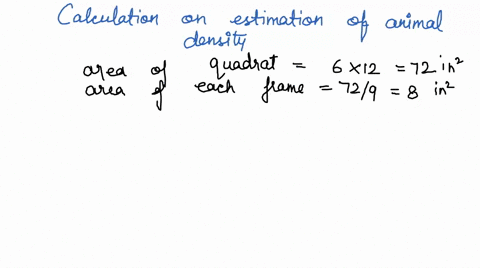 Calculation on estimation of animal
density
area of quadrat = 6 × 12 = 72 in²
area of each frame = 72/9 = 8 in²